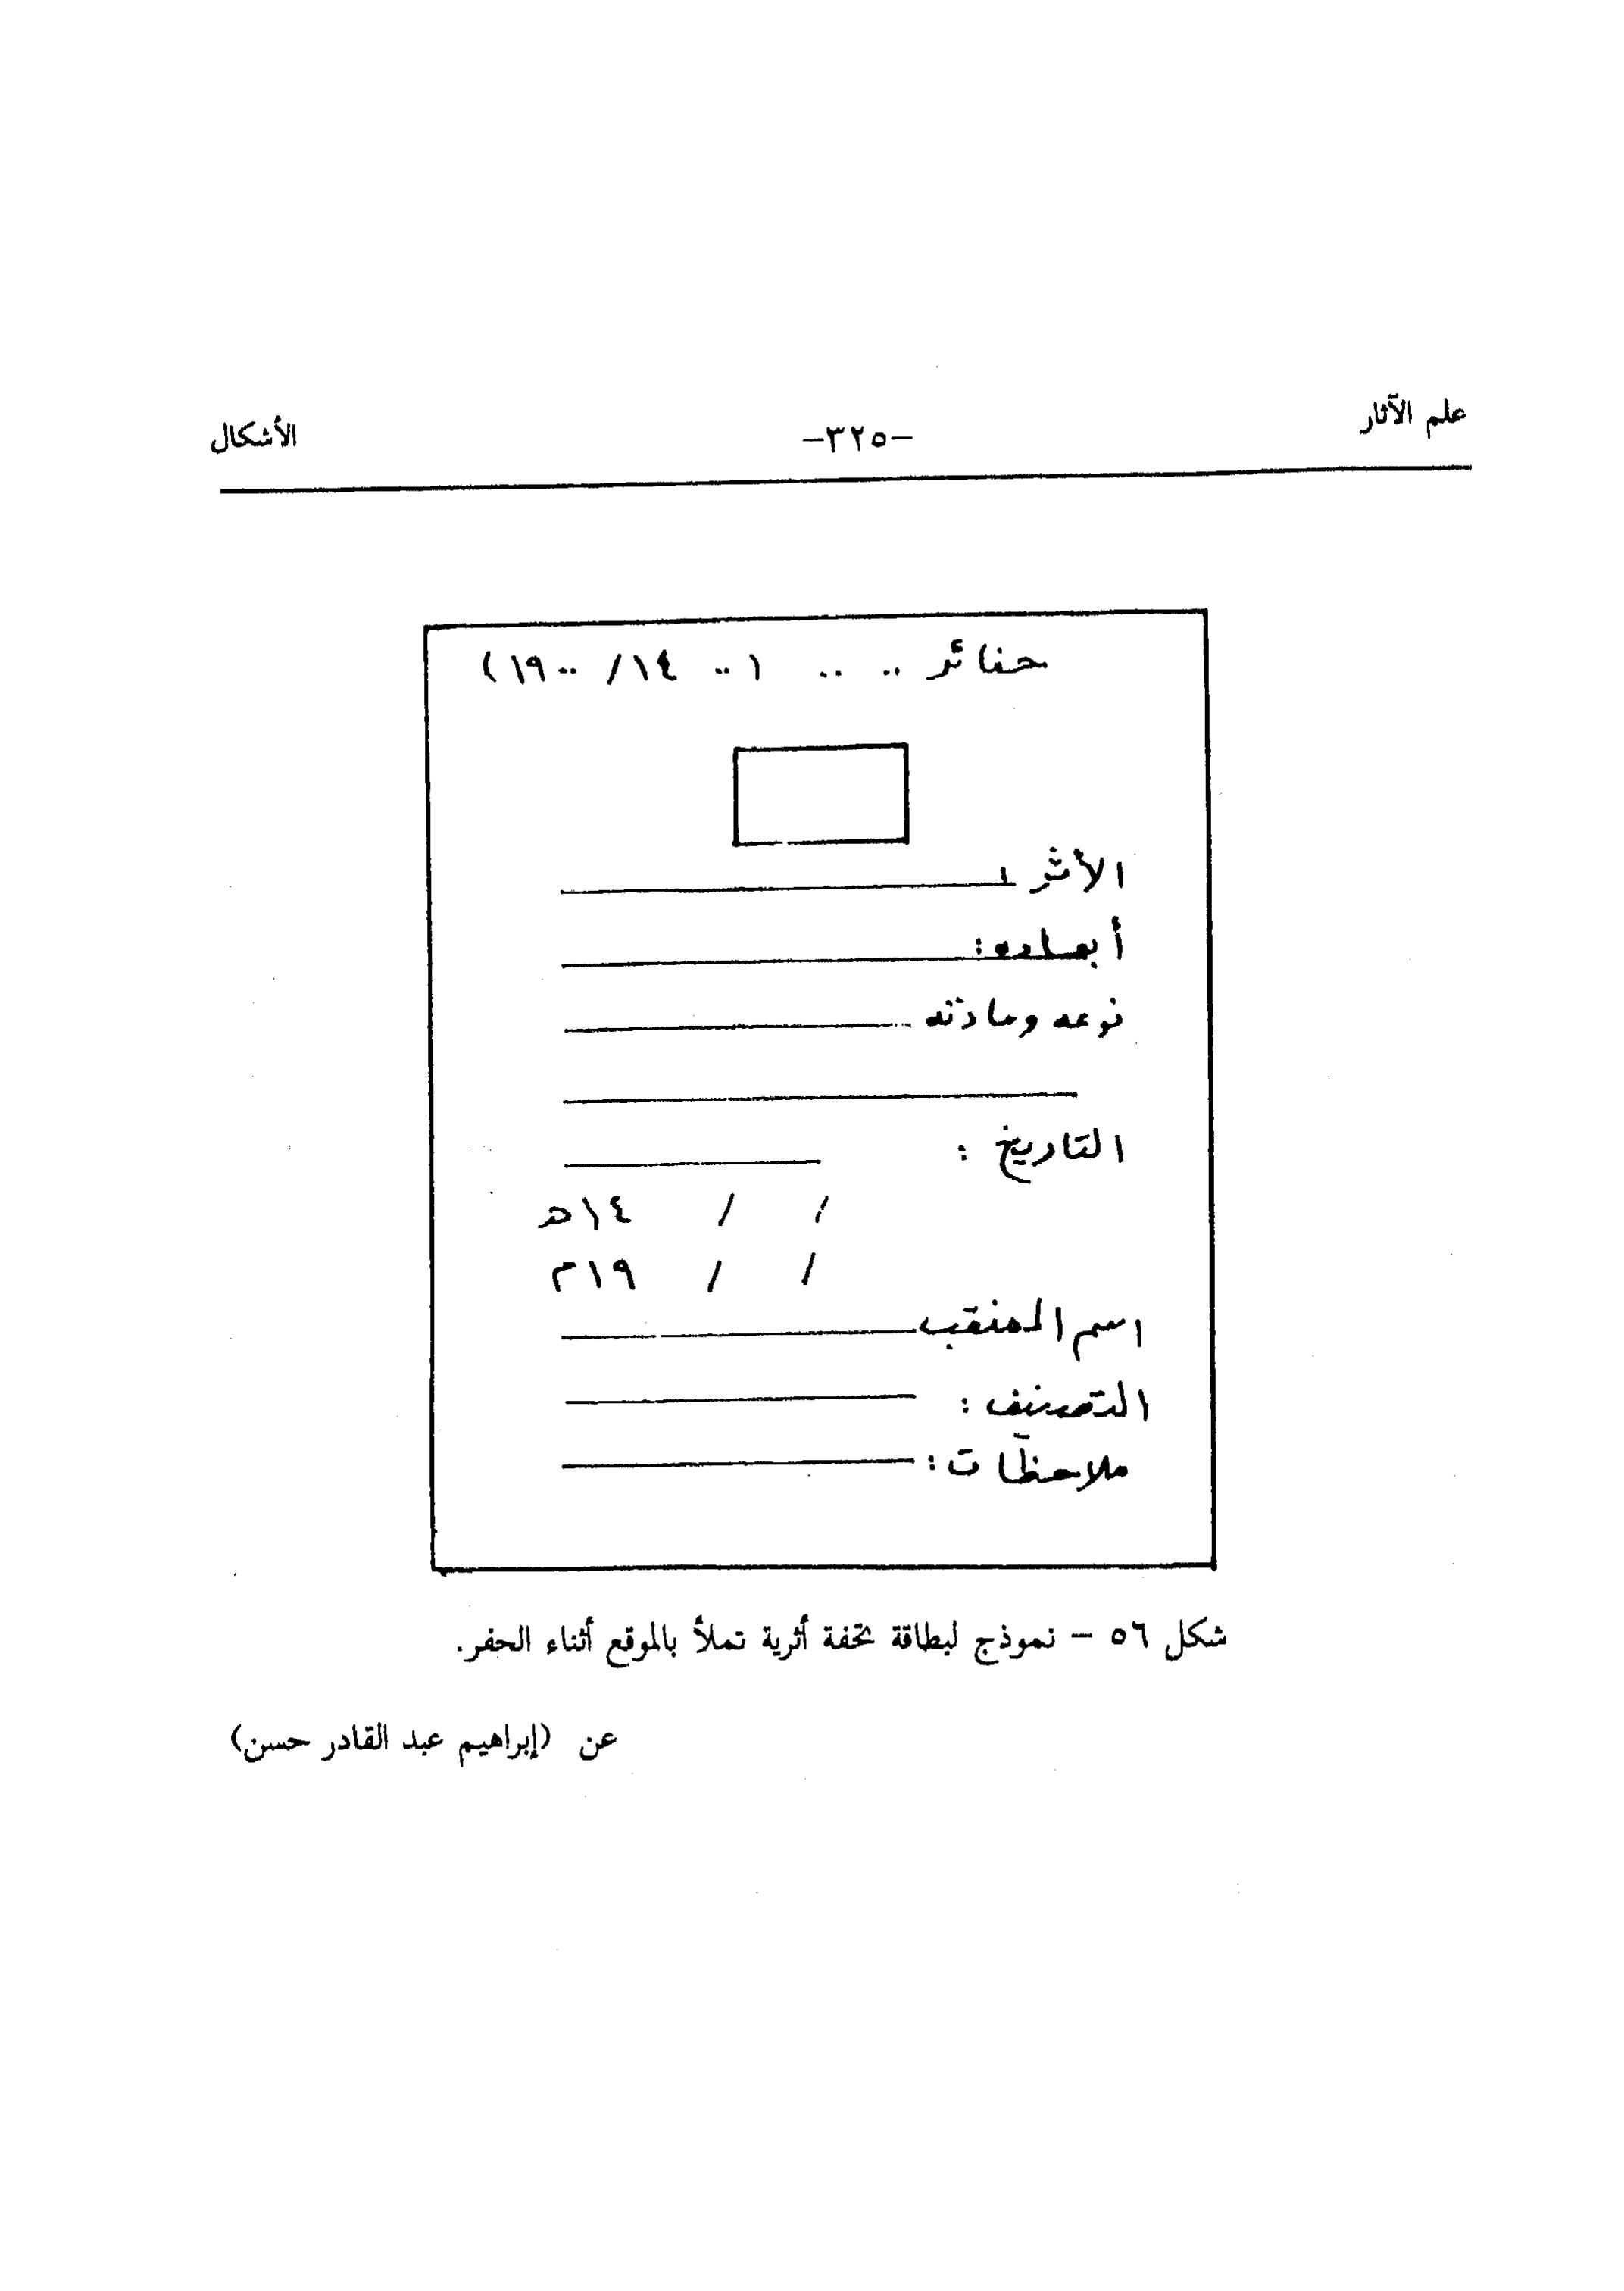 علم الآثار -٣٢٥- الأشكال
حفائر .. .. (.. ١٤/ ..١٩)
الأثر :
أبعاده:
نوعه ومادته
التاريخ :
/ / ١٤هـ
/ / ١٩م
اسم المنقب
التصنيف :
ملاحظات :
شكل ٥٦ – نموذج لبطاقة تحفة أثرية تملأ بالموقع أثناء الحفر.
عن (إبراهيم عبد القادر حسن)